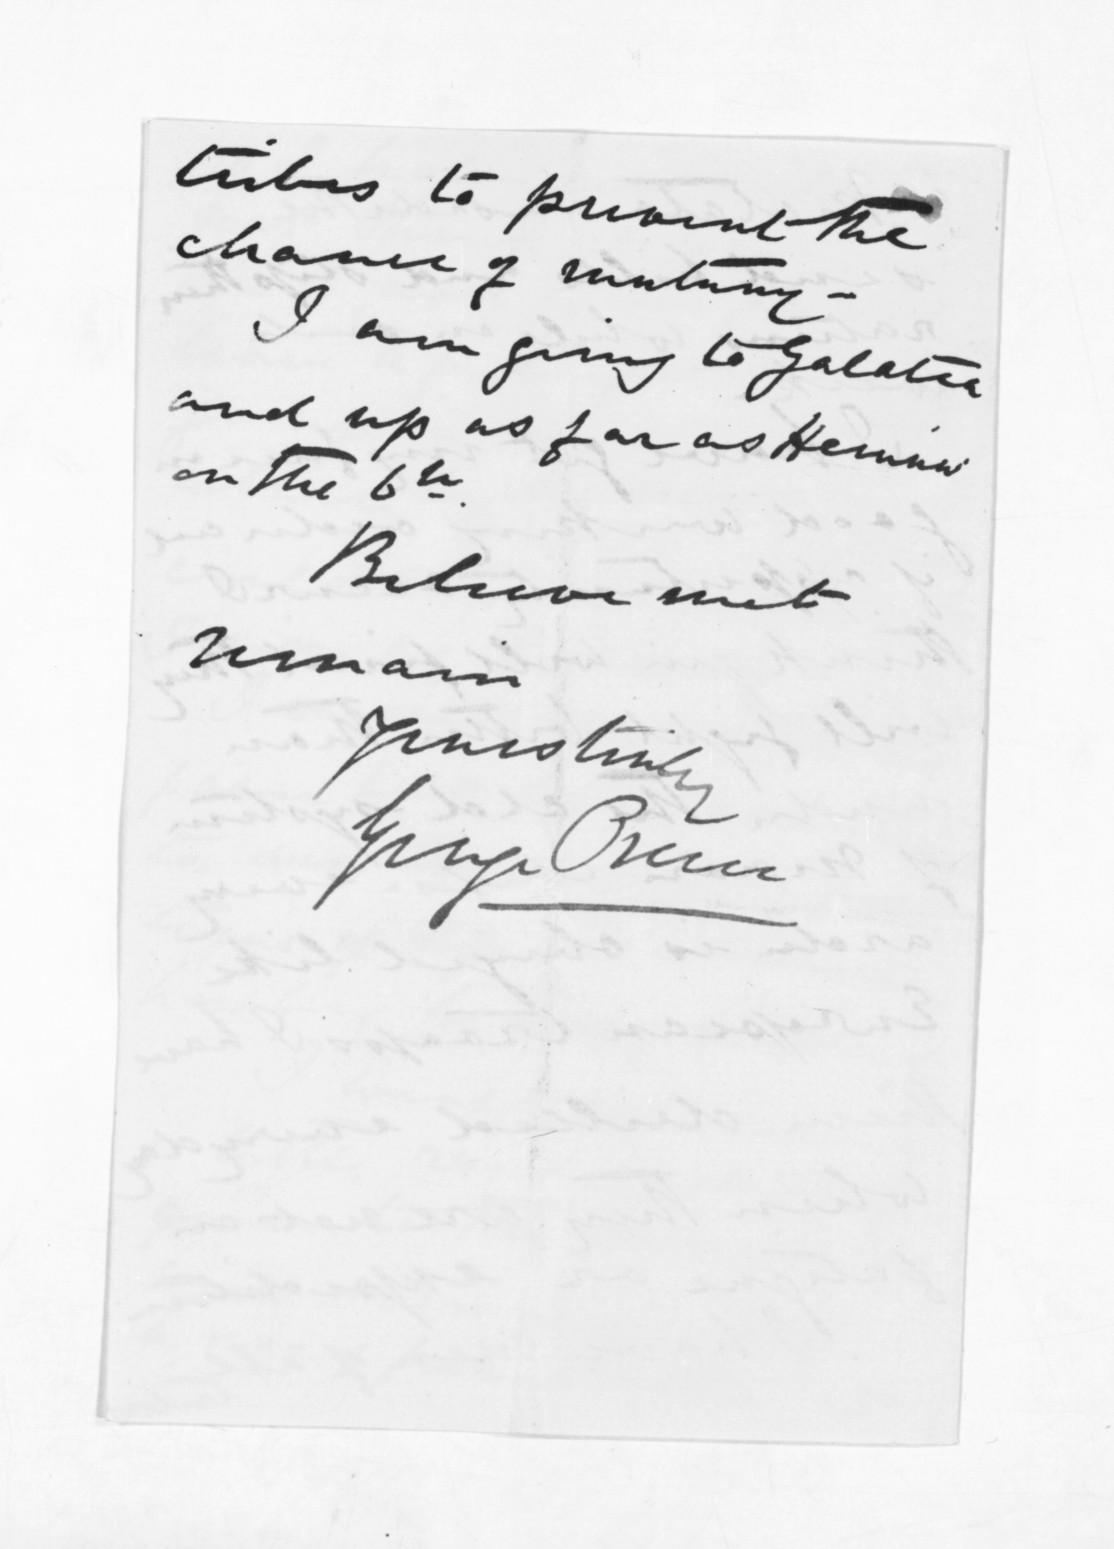 tribes to prevent the
chance of mutiny -
I am going to Galatea
and up as far as
on the 6th.
Believe me to
remain
Yours truly
George